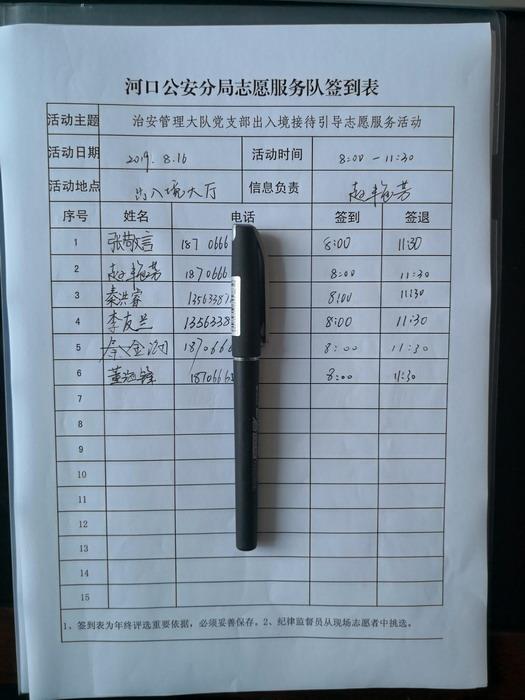 河口公安分局志愿服务队签到表
活动主题 治安管理大队党支部出入境接待引导志愿服务活动
活动日期 2019.8.16 活动时间 8:00-11:30
活动地点 出入境大厅 信息负责 赵艳芳
序号 姓名 电话 签到 签退
1 张敬言 1870666 8:00 11:30
2 赵艳芳 1870666 8:00 11:30
3 秦洪睿 13563387 8:00 11:30
4 李友兰 1356338 8:00 11:30
5 187066 8:00 11:30
6 187066 8:00 11:30
7
8
9
10
11
12
13
14
15
1、签到表为年终评选重要依据，必须妥善保存。2、纪律监督员从现场志愿者中挑选。